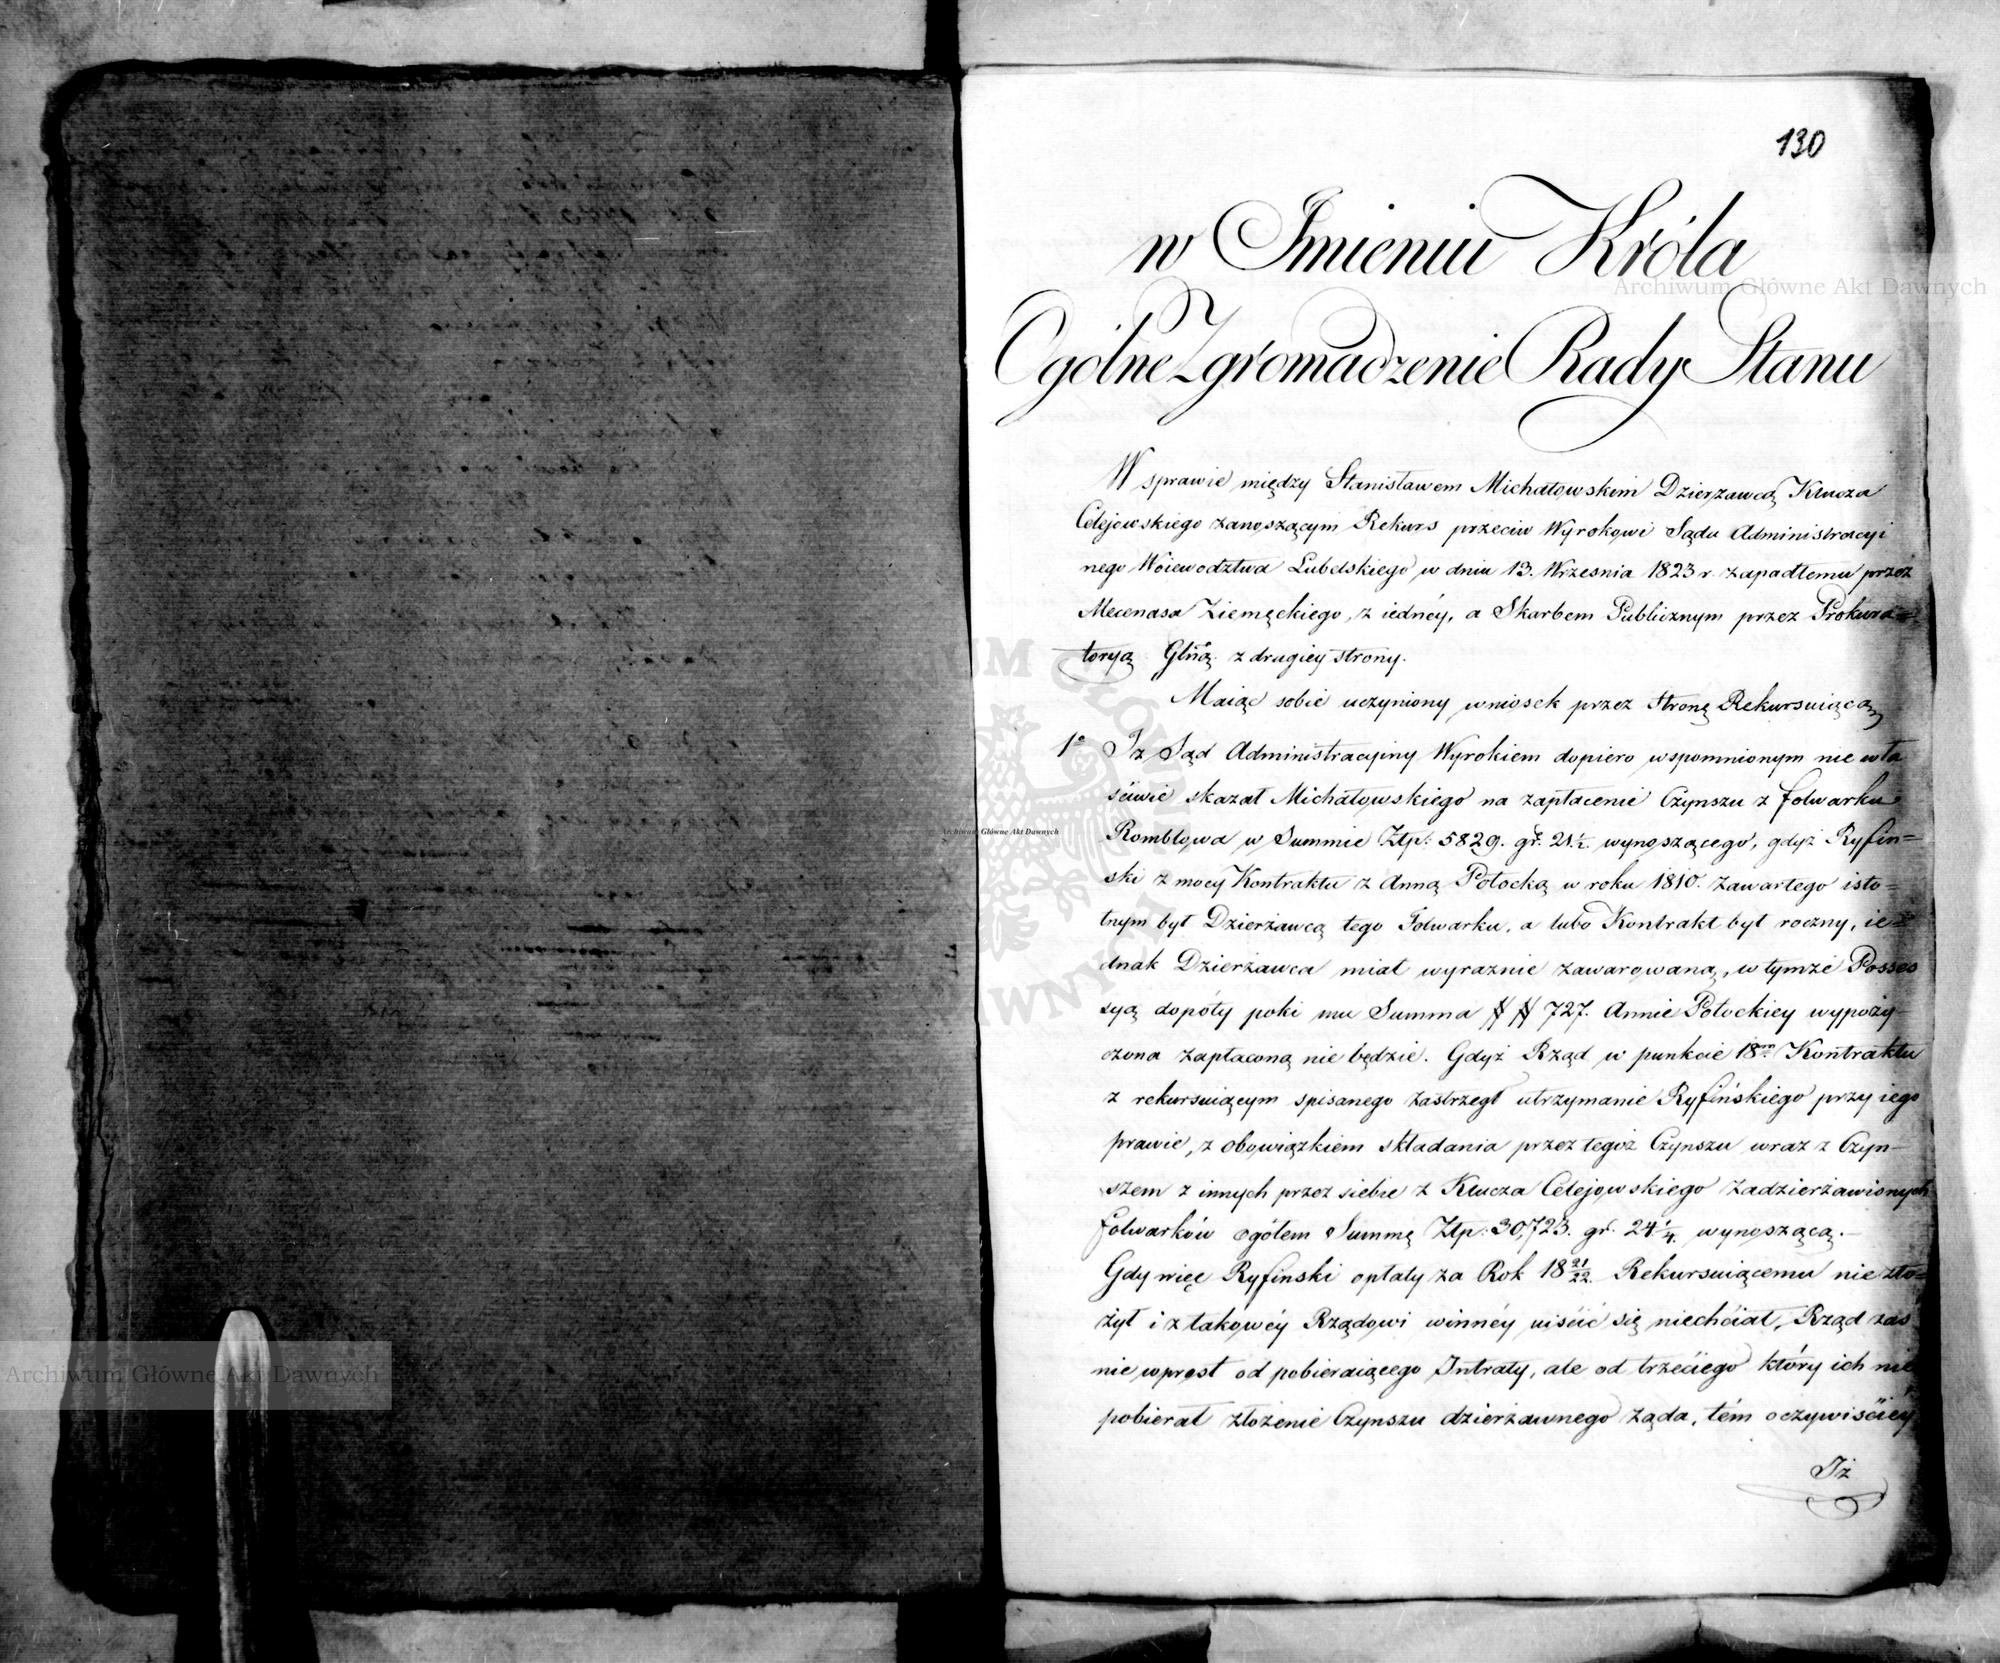 130
w Imieniu Króla
Ogólne Zgromadzenie Rady Stanu
W sprawie między Stanisławem Michałowskim Dzierżawcą Klucza
Celejowskiego zanoszącym Rekurs przeciw Wyrokowi Sądu Administracyi
nego Woiewodztwa Lubelskiego w dniu 13. Wrzesnia 1823 r. zapadłemu przez
Mecenasa Ziemęckiego, z iednéy, a Skarbem Publicznym przez Prokura=
toryą Glną z drugiey strony.
Maiąc sobie uczyniony wniosek przez Stronę Rekursuiącą,
1º Iż Sąd Administracyiny Wyrokiem dopiero wspomnionym nie wła
ściwie skazał Michałowskiego na zapłacenie Czynszu z folwarku
Rombłowa w Summie Złp: 5829. gr. 21 ½. wynoszącego, gdyż Ryfin=
ski z mocy Kontraktu z Anną Potocką w roku 1810. zawartego isto=
tnym był Dzierżawcą tego Folwarku, a lubo Kontrakt był roczny, ie=
dnak Dzierżawca miał wyraznie zawarowaną, w tymże Posses
syą dopóty poki mu Summa # # 727. Annie Potockiey wypoży-
czona zapłaconą nie będzie. Gdyż Rząd w punkcie 18m Kontraktu
z rekursuiącym spisanego zastrzegł utrzymanie Ryfińskiego przy iego
prawie, z obowiązkiem składania przez tegoż Czynszu wraz z Czyn-
szem z innych przez siebie z Klucza Celejowskiego zadzierżawionych
folwarków ogółem Summę Złp: 30,723. gr. 24 ¼. wynoszącą. —
Gdy więc Ryfinski opłaty za Rok 18 21/22. Rekursuiącemu nie zło=
żył i z takowéy Rządowi winnéy uiścić się niechciał, Rząd zaś
nie wprost od pobieraiącego Intraty, ale od trzeciego który ich nie
pobierał złożenie Czynszu dzierżawnego żąda, tém oczywiściéy
Iż
Archiwum Główne Akt Dawnych
Archiwum Główne Akt Dawnych
Archiwum Główne Akt Dawnych